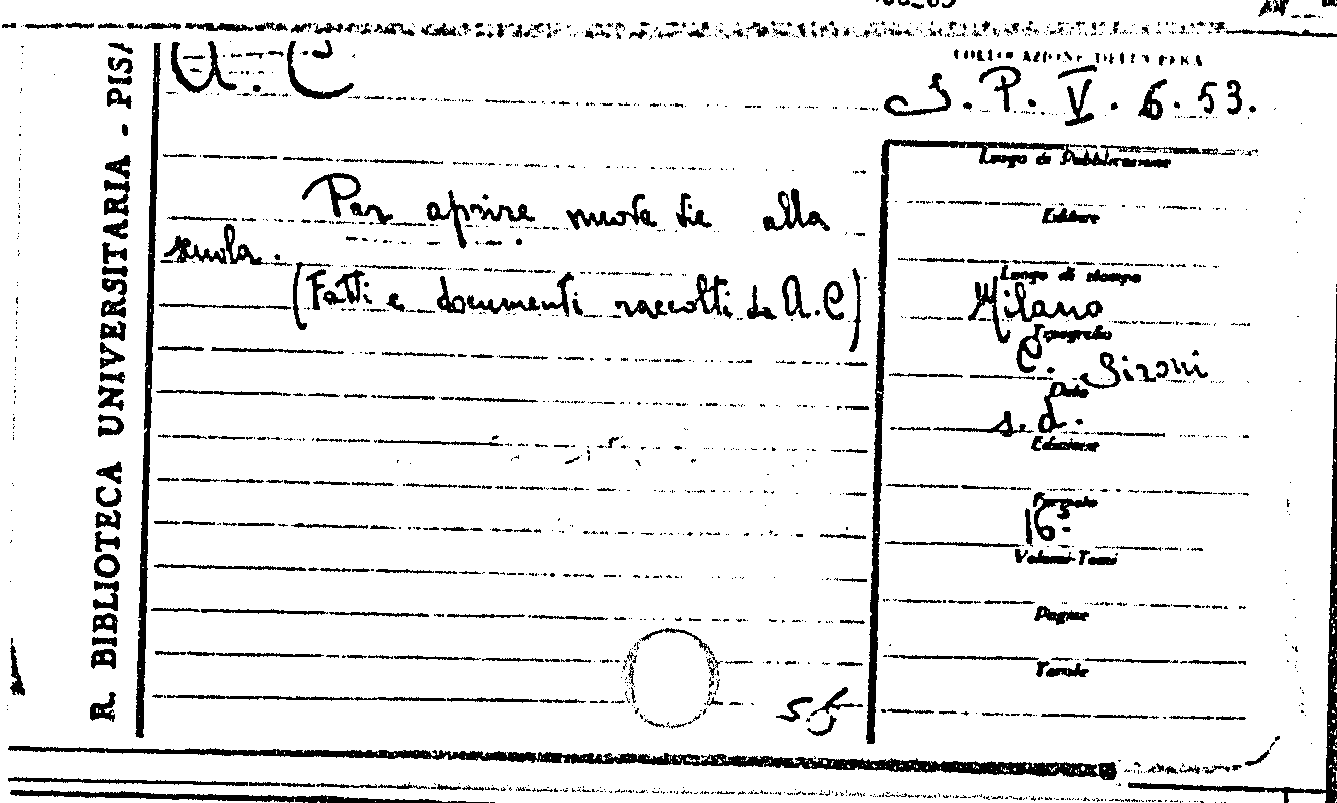 R. BIBLIOTECA UNIVERSITARIA - PISA
A. C
COLLOCAZIONE DELL'OPERA
S. P. V. 6. 53.
Per aprire nuove vie alla
scuola.
(Fatti e documenti raccolti da A. C)
Luogo di Pubblicazione
Editore
Luogo di stampa
Milano
Tipografia
C. Sironi
Data
s. d.
Edizione
Formato
16°
Volumi-Tomi
Pagine
Tavole